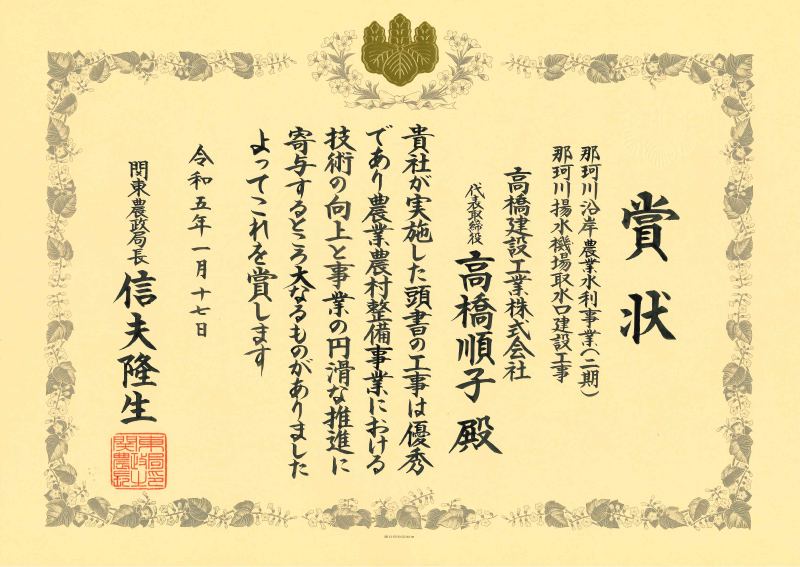 賞状
那珂川沿岸農業水利事業(二期)
那珂川揚水機場取水口建設工事
高橋建設工業株式会社
代表取締役 高橋順子 殿
貴社が実施した頭書の工事は優秀
であり農業農村整備事業における
技術の向上と事業の円滑な推進に
寄与するところ大なるものがありました
よってこれを賞します
令和五年一月十七日
関東農政局長 信夫隆生